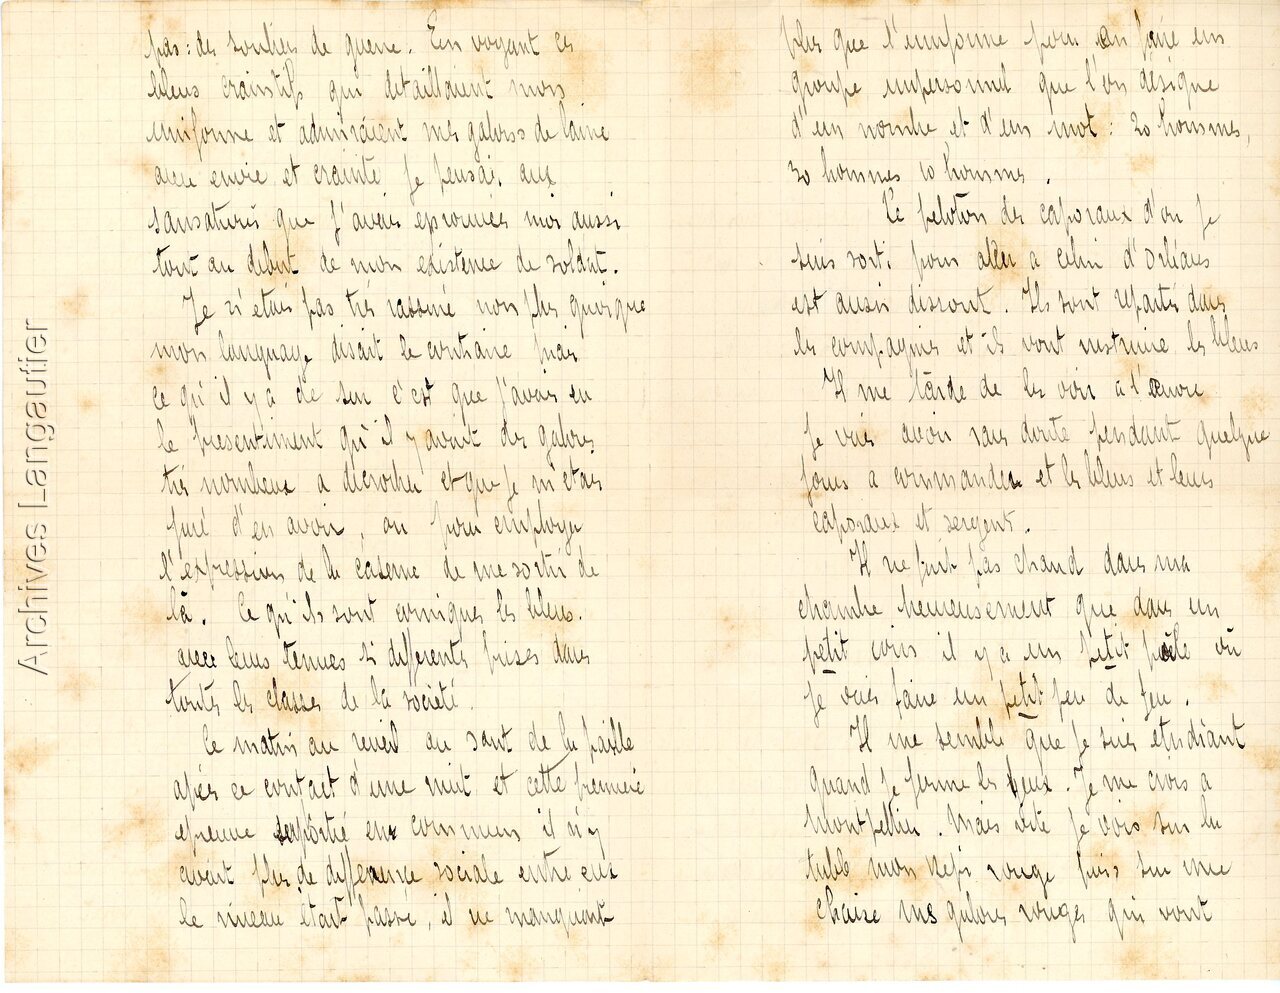 pas: des souliers de guerre. En voyant ces
bleus craintifs qui detaillaient mon
uniforme et admiraient mes galons de laine
avec envie et crainte je pensai, aux
sensations que j'avais eprouvées moi aussi
tout au debut de mon existence de soldat.
Je n'étais pas très rassuré non plus quoique
mon language disait le contraire mais
ce qu'il y a de sur c'est que j'avais eu
le pressentiment qu'il y avait des galons
très nombreux a decrocher et que je m'étais
juré d'en avoir, ou pour employer
l'expression de la caserne de me sortir de
là. Ce qu'ils sont comiques les bleus.
avec leurs tenues si differentes prises dans
toutes les classes de la société.
Le matin au reveil au saut de la paille
après ce contact d'une nuit et cette première
epreuve supportée en commun il n'y
avait plus de difference sociale entre eux
le niveau était passé, il ne manquait
plus que l'uniforme pour en faire un
groupe impersonnel que l'on désigne
d'un nombre et d'un mot: 20 hommes,
30 hommes 10 hommes.
Le peloton des caporaux d'ou je
suis sorti pour aller a celui d'Orléans
est aussi dissout. Ils sont repartis dans
les compagnies et ils vont instruire les bleus
Il me tarde de les voir a l'œuvre
Je vais avoir sans doute pendant quelque
jours a commander et les bleus et leurs
caporaux et sergent.
Il ne fait pas chaud dans ma
chambre heureusement que dans un
petit coin il y a un petit poêle où
je vais faire un petit peu de feu.
Il me semble que je suis etudiant
quand je ferme les yeux. Je me crois a
Montpellier. Mais vite je vois sur la
table mon kepi rouge puis sur une
chaise mes galons rouges qui vont
Archives Langautier